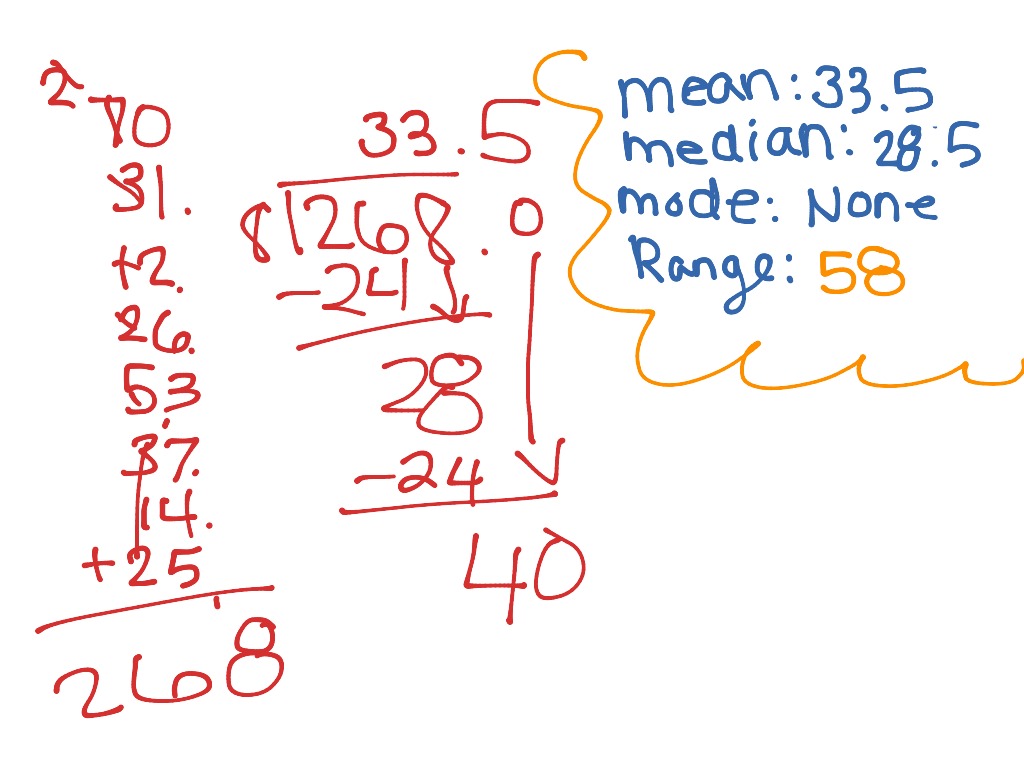 2
70
31.
+2.
26.
53
37.
14.
+25
268
33.5
8|268.0
-24
28
-24
40
mean: 33.5
median: 28.5
mode: None
Range: 58